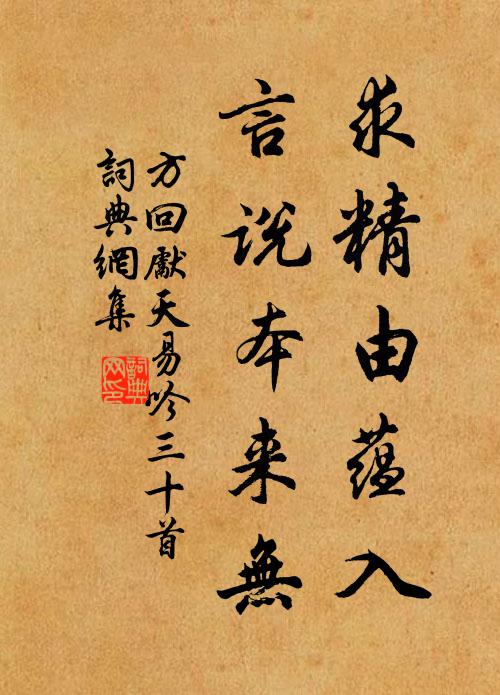 求精由蘊入
言說本来無
方回獻天易吟三十首
詞典網集
詞典网印